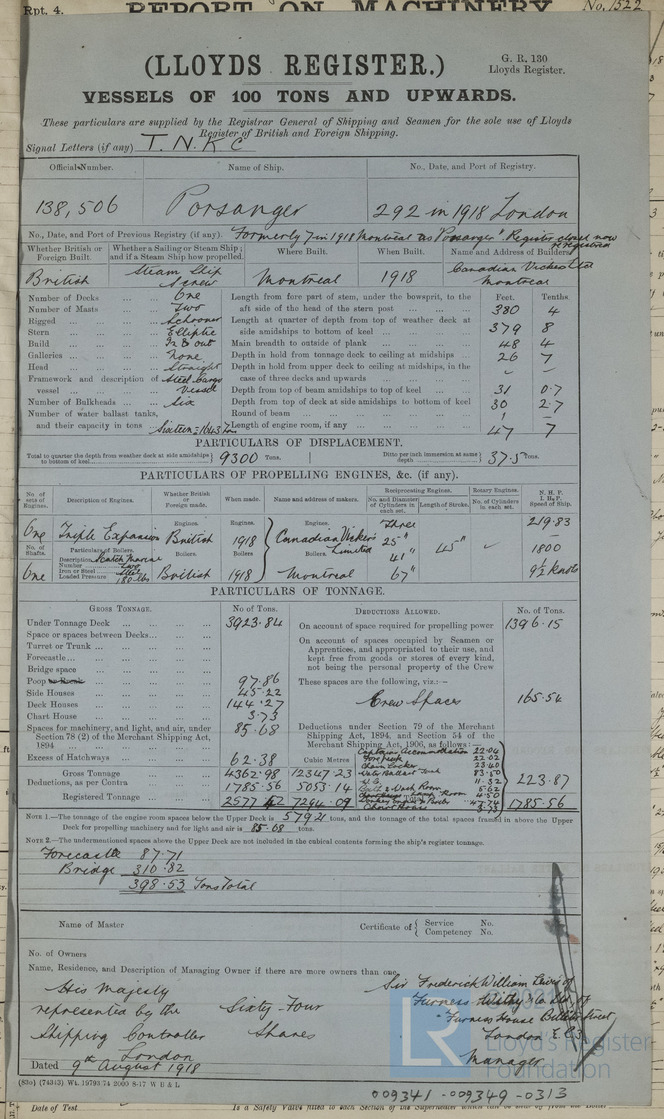 Rpt. 4.
REPORT ON MACHINERY
No. 1522
(LLOYDS REGISTER.)
G. R. 130
Lloyds Register.
VESSELS OF 100 TONS AND UPWARDS.
These particulars are supplied by the Registrar General of Shipping and Seamen for the sole use of Lloyds
Register of British and Foreign Shipping.
Signal Letters (if any) T. N. K C
Official Number.
Name of Ship.
No., Date, and Port of Registry.
138,506
Porsanger
292 in 1918 London
No., Date, and Port of Previous Registry (if any). Formerly 7 in 1918 Montreal as "Porsanger" Register closed now
registered
Whether British or Foreign Built.
Whether a Sailing or Steam Ship; and if a Steam Ship how propelled.
Where Built.
When Built.
Name and Address of Builders
British
Steam Ship
Screw
Montreal
1918
Canadian Vickers Ltd
Montreal
Number of Decks One
Number of Masts Two
Rigged Schooner
Stern Elliptic
Build In & out
Galleries None
Head Straight
Framework and description of vessel Steel Cargo Vessel
Number of Bulkheads Six
Number of water ballast tanks, and their capacity in tons Sixteen = 1643
Feet. Tenths
Length from fore part of stem, under the bowsprit, to the aft side of the head of the stern post 380 4
Length at quarter of depth from top of weather deck at side amidships to bottom of keel 379 8
Main breadth to outside of plank 48 4
Depth in hold from tonnage deck to ceiling at midships 26 7
Depth in hold from upper deck to ceiling at midships, in the case of three decks and upwards – –
Depth from top of beam amidships to top of keel 31 0.7
Depth from top of deck at side amidships to bottom of keel 30 2.7
Round of beam 1 –
Length of engine room, if any 47 7
PARTICULARS OF DISPLACEMENT.
Total to quarter the depth from weather deck at side amidships to bottom of keel 9300 Tons.
Ditto per inch immersion at same depth 37.5 Tons.
PARTICULARS OF PROPELLING ENGINES, &c. (if any).
No. of sets of Engines.
Description of Engines.
Whether British or Foreign made.
When made.
Name and address of makers.
Reciprocating Engines.
No. and Diameter of Cylinders in each set.
Length of Stroke.
Rotary Engines.
No. of Cylinders in each set.
N. H. P.
I. H. P.
Speed of Ship.
One
Triple Expansion
Engines.
British
Engines.
1918
Engines.
Canadian Vickers
Limited
Montreal
Three
25"
41"
67"
45"
219.83
1800
9½ knots
No. of Shafts.
One
Particulars of Boilers.
Description Scotch Marine
Number Two
Iron or Steel Steel
Loaded Pressure 180 lbs
Boilers.
British
Boilers
1918
Boilers.
PARTICULARS OF TONNAGE.
GROSS TONNAGE.
No of Tons.
Under Tonnage Deck 3923.84
Space or spaces between Decks
Turret or Trunk
Forecastle
Bridge space
Poop 97.86
Side Houses 45.22
Deck Houses 144.27
Chart House 3.73
Spaces for machinery, and light, and air, under Section 78 (2) of the Merchant Shipping Act, 1894 85.68
Excess of Hatchways 62.38
Cubic Metres
Gross Tonnage 4362.98 12347.23
Deductions, as per Contra 1785.56 5053.14
Registered Tonnage 2577.42 7294.09
DEDUCTIONS ALLOWED.
No. of Tons.
On account of space required for propelling power 1396.15
On account of spaces occupied by Seamen or Apprentices, and appropriated to their use, and kept free from goods or stores of every kind, not being the personal property of the Crew
These spaces are the following, viz.:—
Crew Spaces 165.54
Deductions under Section 79 of the Merchant Shipping Act, 1894, and Section 54 of the Merchant Shipping Act, 1906, as follows:—
Captains Accommodation 22.04
Fore peak 22.02
Chain Locker 23.40
Water Ballast Tank 83.50
11.32
5.62
4.50
47.74
Chart House 3.73
223.87
1785.56
NOTE 1.—The tonnage of the engine room spaces below the Upper Deck is 579.21 tons, and the tonnage of the total spaces framed in above the Upper
Deck for propelling machinery and for light and air is 85.68 tons.
NOTE 2.—The undermentioned spaces above the Upper Deck are not included in the cubical contents forming the ship's register tonnage.
Forecastle 87.71
Bridge 310.82
398.53 Tons Total
Name of Master
Certificate of { Service No.
Competency No.
No. of Owners
Name, Residence, and Description of Managing Owner if there are more owners than one.
His Majesty
represented by the
Shipping Controller
London
Sixty Four
Shares
Sir Frederick William Lewis of
Furness Withy & Co Ld. of
Furness House Billiter Street
London E.C.3
Manager
Dated 9th August 1918
(83o) (74343) Wt. 19793.74 2000 8-17 W B & L
009341-009349-0313
© 2021
LR
Lloyd's Register
Foundation
Date of Test
Is a Safety Valve fitted to each Section of the Superheater which